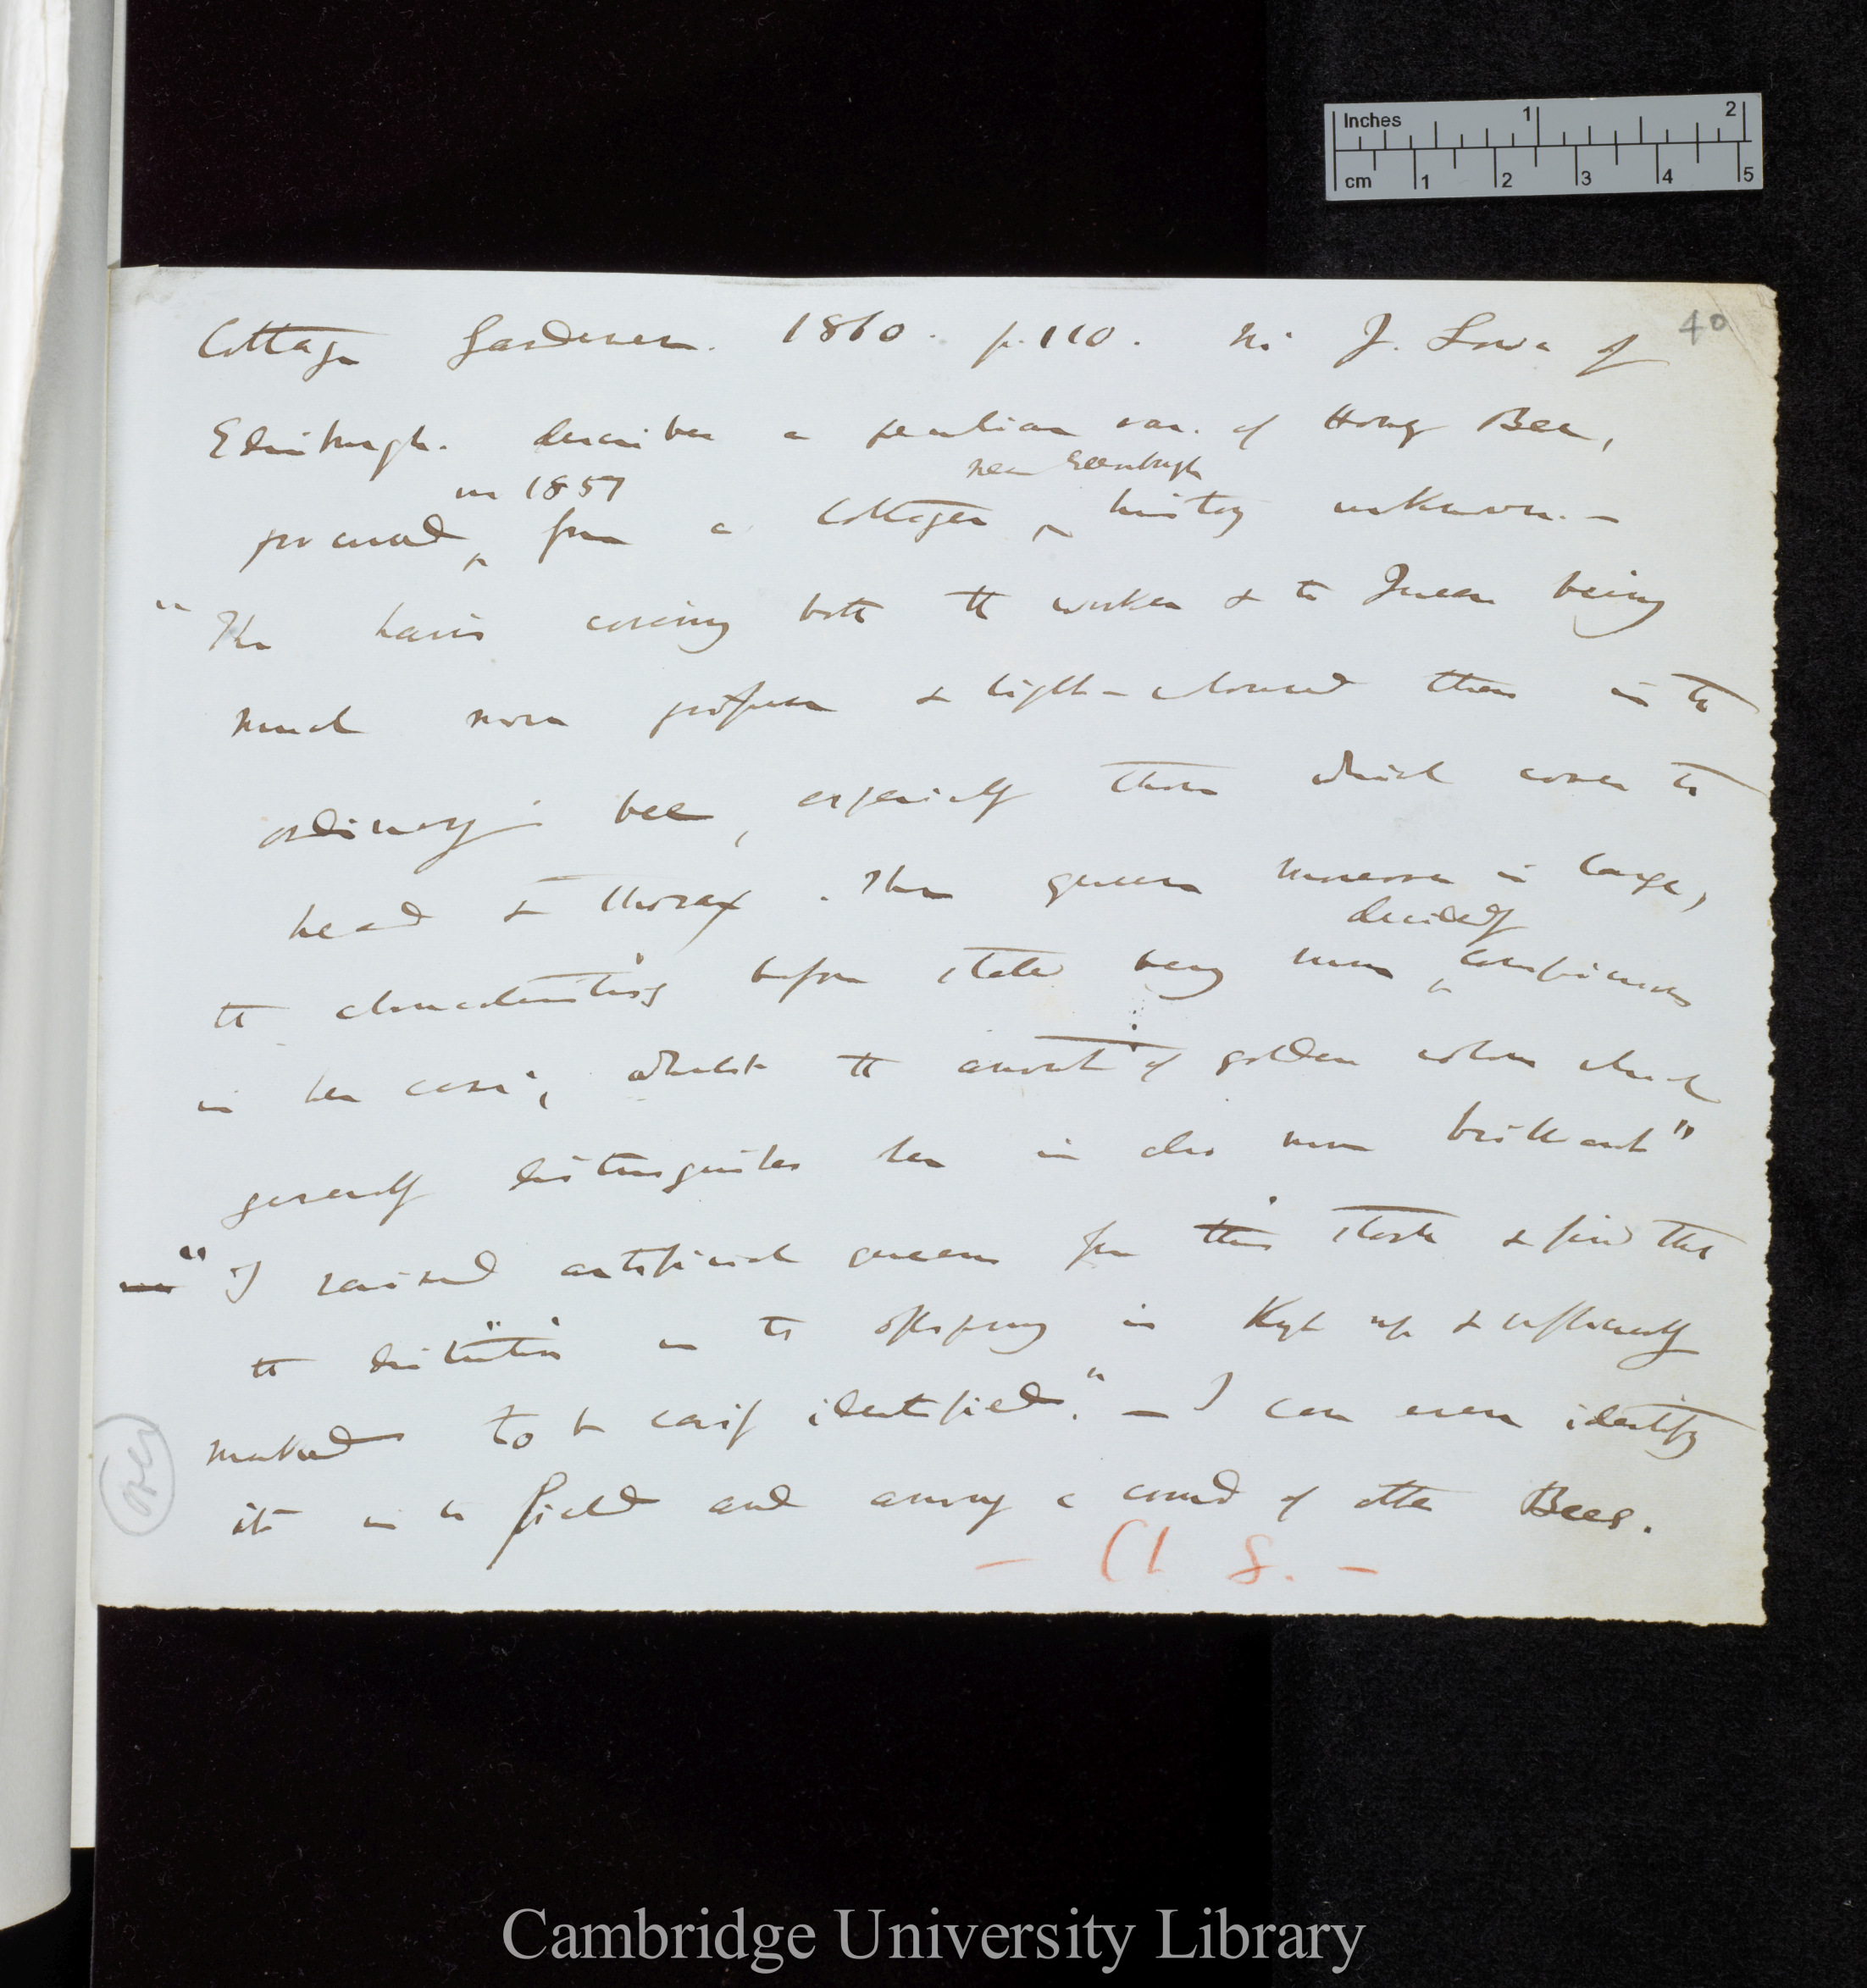 40
Cottage Gardener. 1860. p. 110. Mr J. Lowe of
Edinburgh. describes a peculiar var. of Honey Bee,
in 1857 near Edinburgh
procured from a Cottager history unknown. —
"The hairs covering both the worker & the Queen being
much more profuse & light-coloured than in the
ordinary bee, especially those which cover the
head & thorax. The queen moreover is large,
decidedly
the characteristics before stated being more conspicuous
in her case; whilst the amount of golden colour which
generally distinguishes her is also more brilliant"
"I raised artificial queens from this stock & find that
the distinction in the offspring is kept up & sufficiently
marked to be easily identified." — I can even identify
it in the field and among a crowd of other Bees.
over
— Ch 8. —
Inches 1 2
cm 1 2 3 4 5
Cambridge University Library